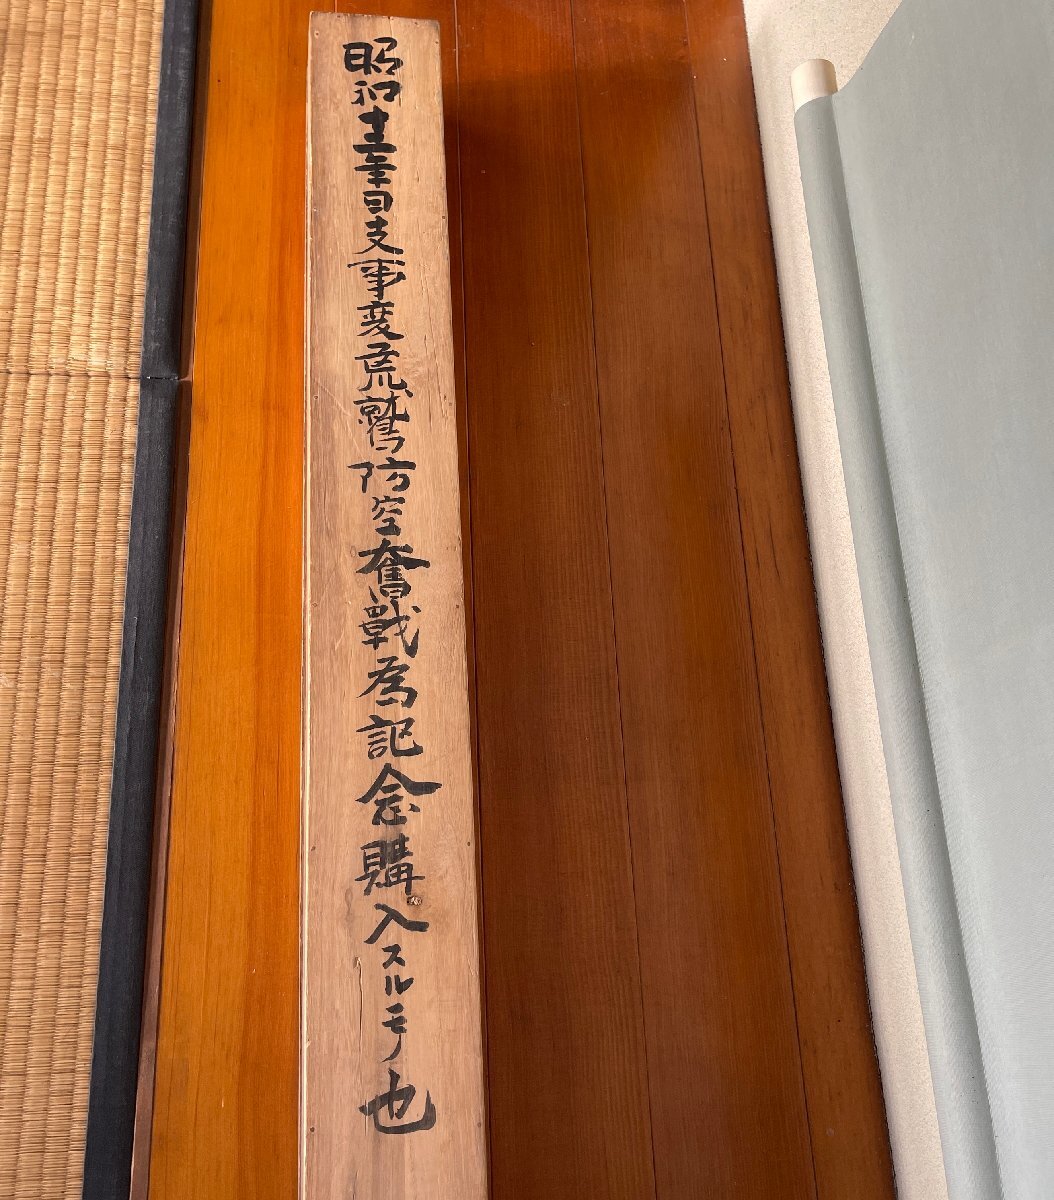 昭和十三年日支事変荒鷲防空奮戦為記念購入スルモノ也